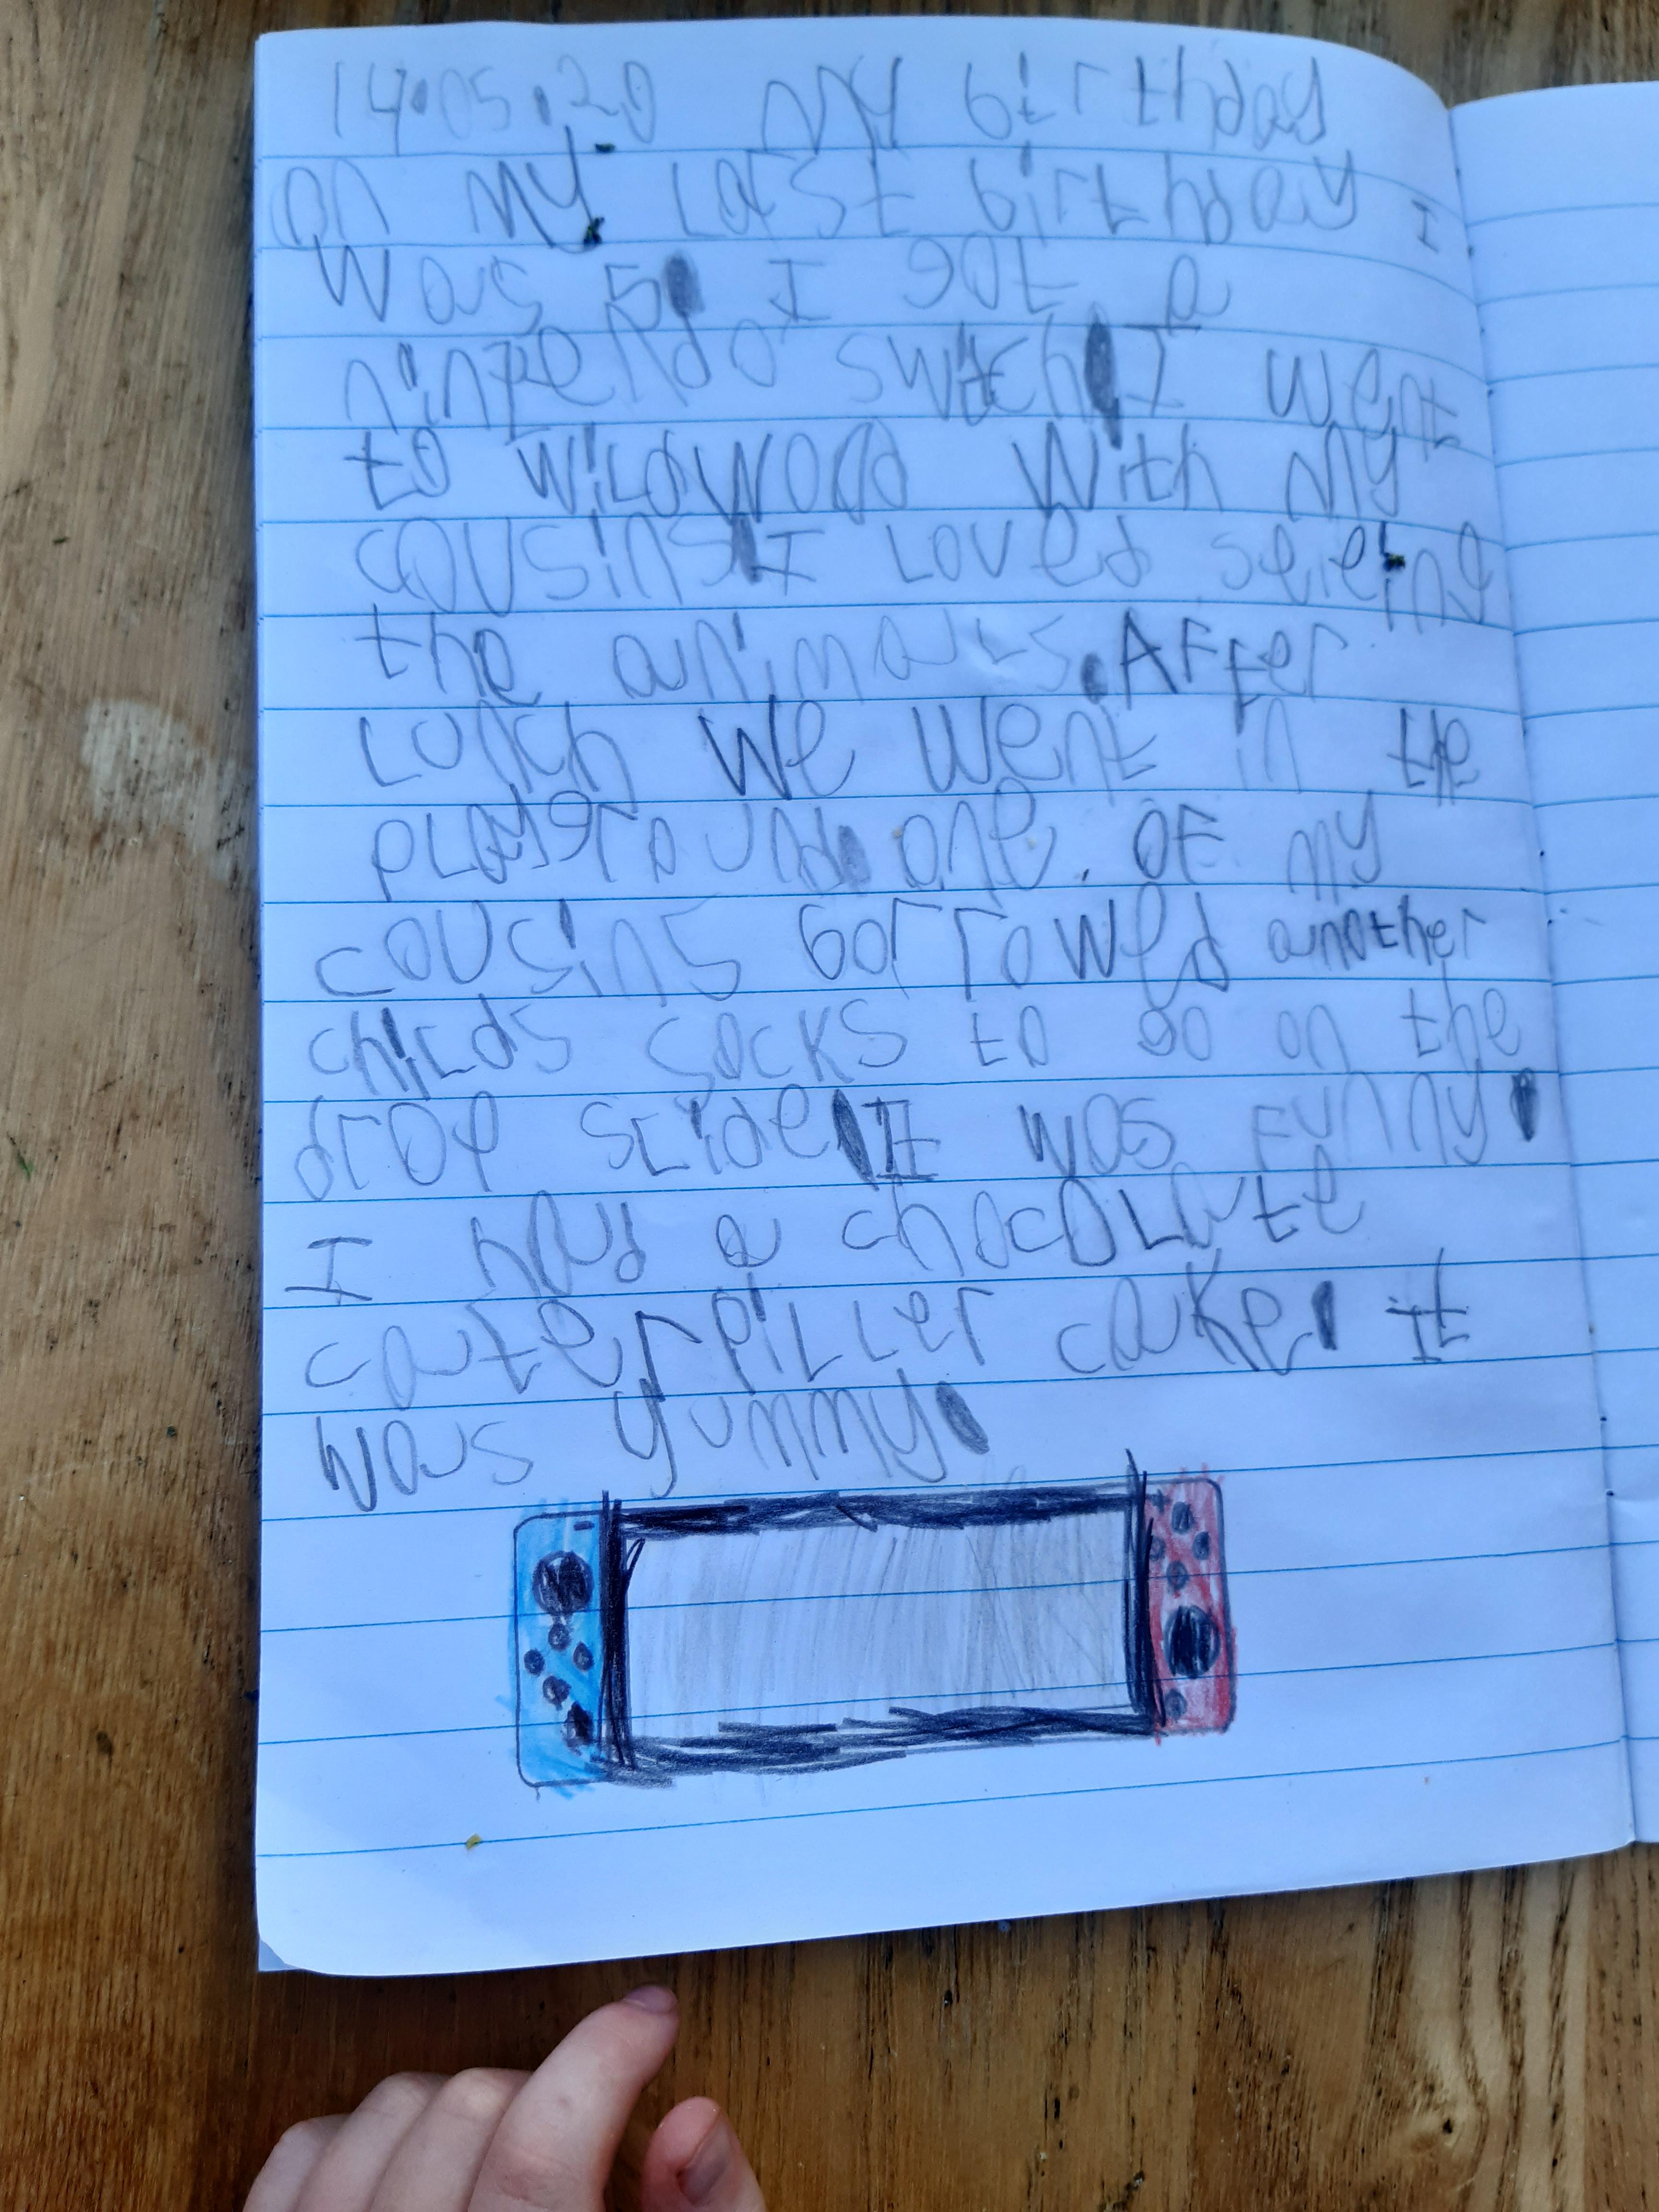 14.05.20 My birthday
on my last birthday I
was 5. I got a
nintendo switch. I went
to wildwood with my
cousins. I loved seeing
the animals. After
lunch we went in the
playground. one of my
cousins borrowed another
childs socks to go on the
drop slide. It was funny.
I had a chocolate
caterpiller cake. it
was yummy.